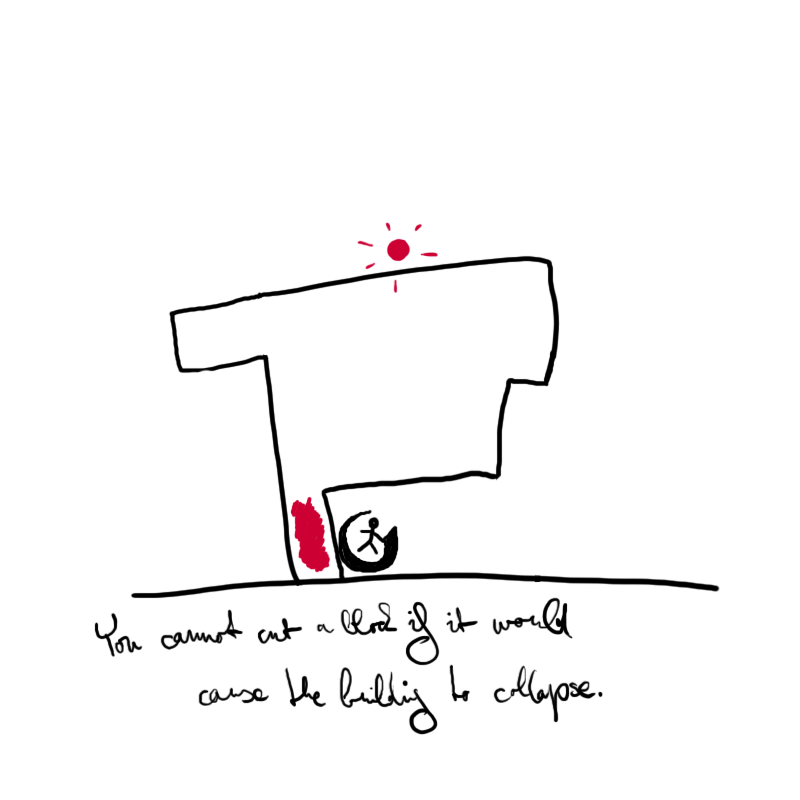 You cannot cut a block if it would
cause the building to collapse.